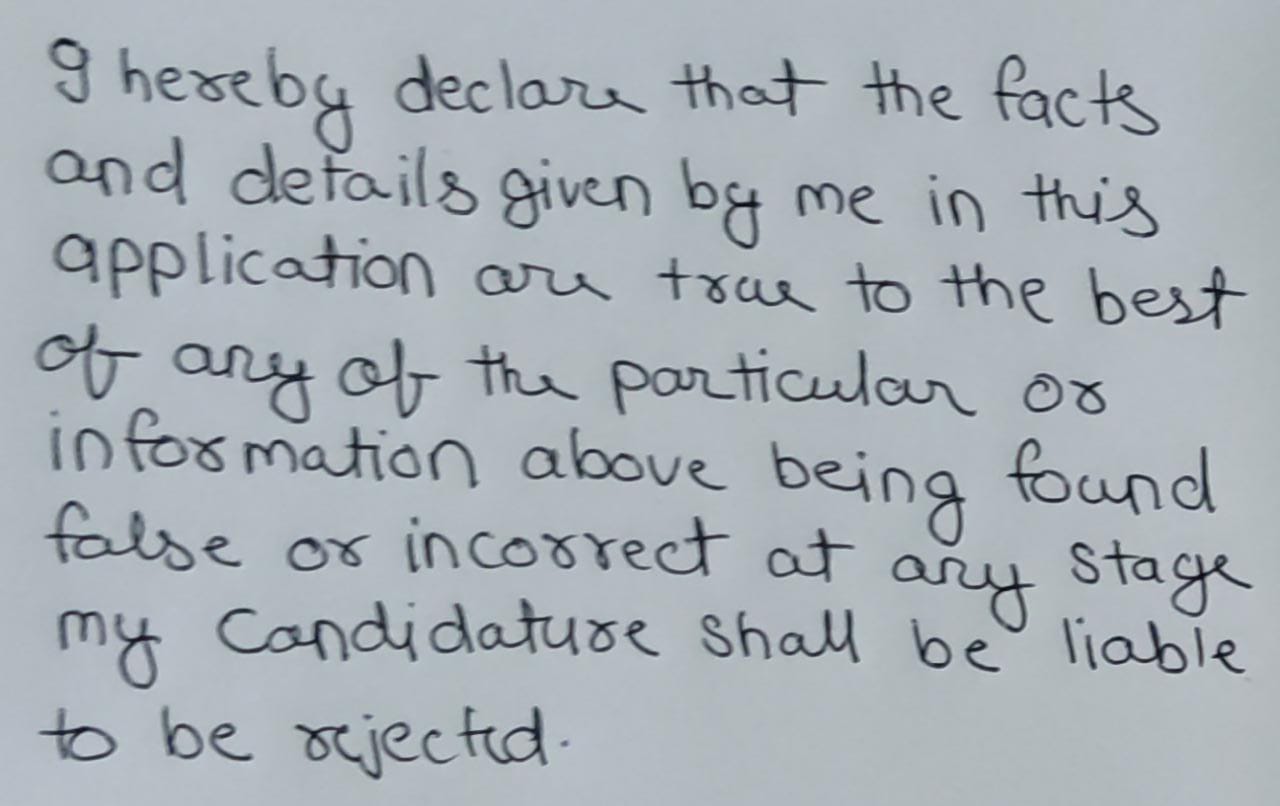 I hereby declare that the facts
and details given by me in this
application are true to the best
of any of the particular or
information above being found
false or incorrect at any stage
my Candidature shall be liable
to be rejected.